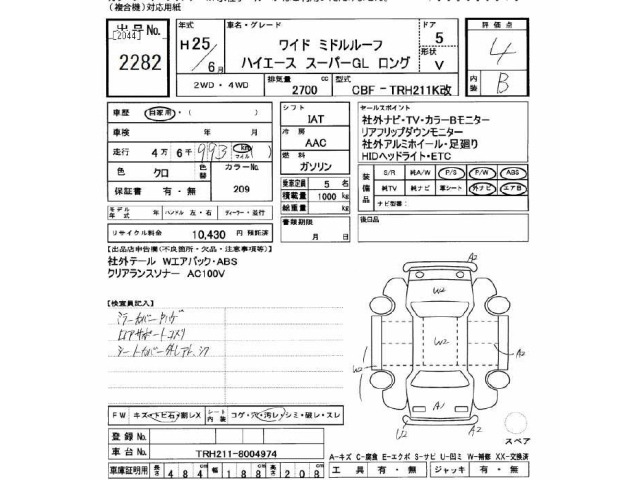 (複合機)対応用紙
出品No.
[2044]
2282
H25/6月
車名・グレード
ワイド ミドルルーフ
ハイエース スーパーGL ロング
ドア
5
形状
V
評価点
4
内装
B
2WD・4WD
排気量
2700 cc
型式
CBF-TRH211K改
車歴
自家用・(
車検 年 月
走行 4万6千993 km マイル ( )
色 クロ
色替
カラーNo.
209
保証書 有・無
モデル年式 年 ハンドル 左・右 ディーラー・並行
リサイクル料金 10,430 円 預託済
シフト
IAT
冷房
AAC
燃料
ガソリン
乗車定員 5 名
積載量 1000 kg
総重量 kg
書類期限
月 日
セールスポイント
社外ナビ・TV・カラーBモニター
リアフリップダウンモニター
社外アルミホイール・足廻り
HIDヘッドライト・ETC
装備品
S/R 純A/W P/S P/W ABS
純TV 純ナビ 革シート 外ナビ エアB
ナビ型番:
後日品
【出品店申告欄(不良箇所・欠品・注意事項等)】
社外テール Wエアバック・ABS
クリアランスソナー AC100V
【検査員記入】
FW キズ・トビ石・割レX シート内装 コゲ・穴・汚レ・シミ・破レ・スレ
登録No.
車台No. TRH211-8004974
車庫証明用 長さ 484 幅 188 高さ 208
W2
W2
W2
A2
A1
U2
A2
スペア
A-キズ C-腐食 E-エクボ S-ナビ U-凹ミ W-補修 XX-交換済
工具 有・無 ジャッキ 有・無